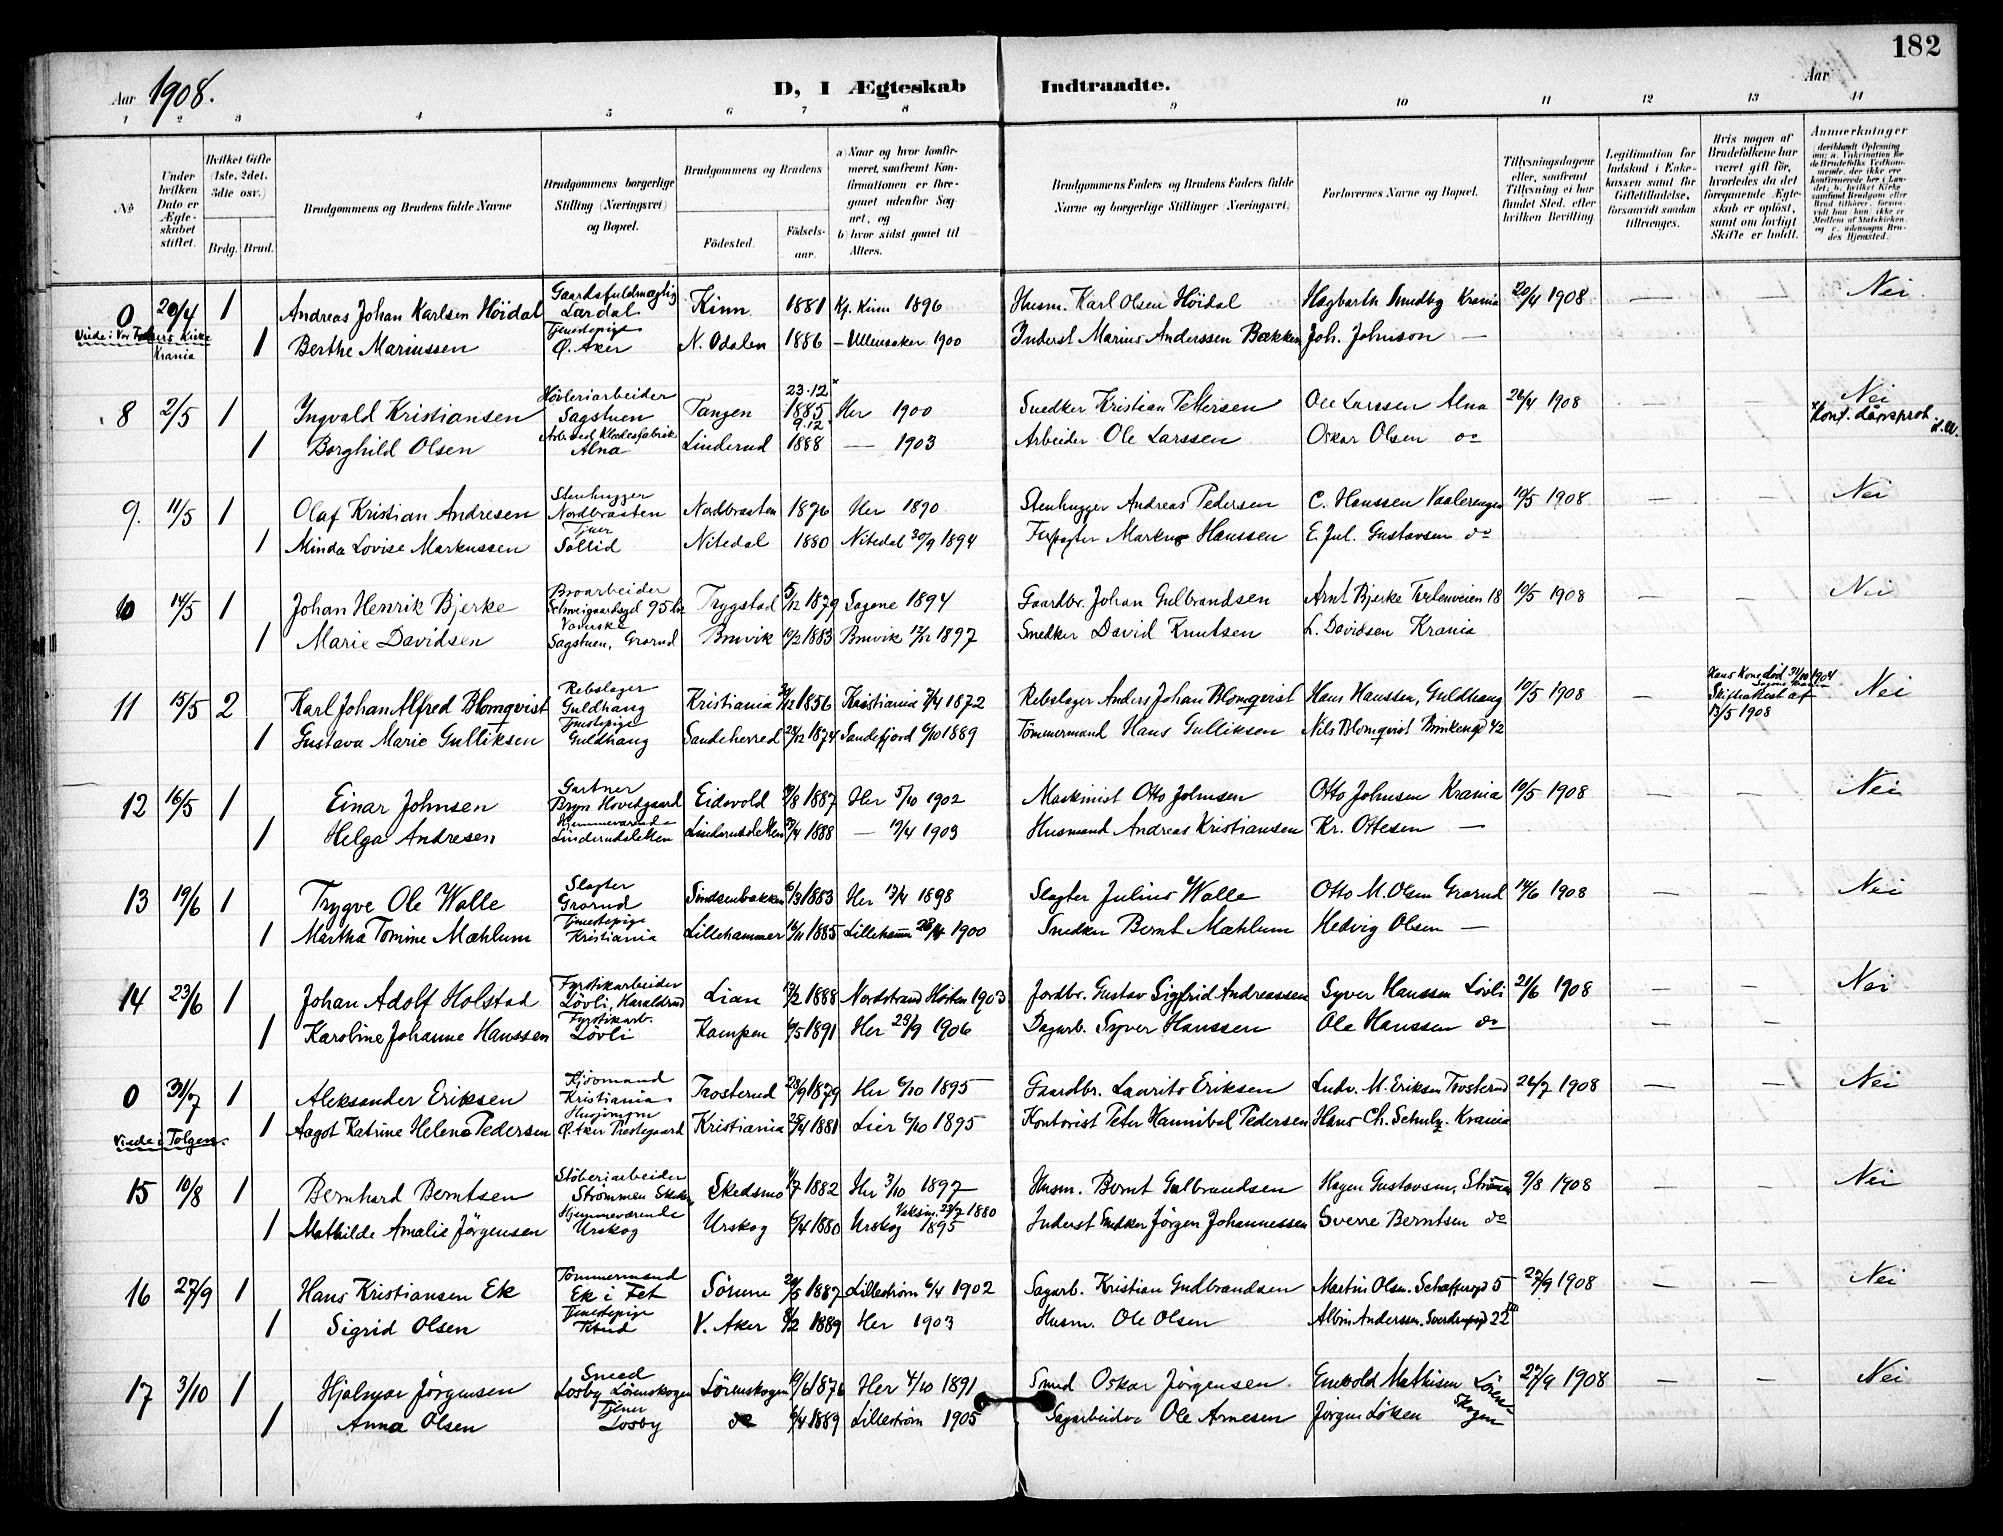 182
Aar 1908.
D, I Ægteskab Indtraadte.
Aar
1 2 3 4 5 6 7 8 9 10 11 12 13 14
No
Under hvilken Dato er Ægteskabet stiftet.
Hvilket Gifte (1ste, 2det, 3die osv.)
Brdg. Brud.
Brudgommens og Brudens fulde Navne
Brudgommens borgerlige Stilling (Næringsvei) og Bopæl.
Brudgommens og Brudens
Födested. Födsels-aar.
a) Naar og hvor konfirmeret, saafremt Konfirmationen er foregaaet udenför Sognet, og
b) hvor sidst gaaet til Alters.
Brudgommens Faders og Brudens Faders fulde Navne og borgerlige Stillinger (Næringsvei)
Forlovernes Navne og Bopæl.
Tillysningsdagene eller, saafremt Tillysning ei har fundet Sted, efter hvilken Bevilling.
Legitimation for Indskud i Enkekassen samt for Giftetilladelse, forsaavidt saadan tiltrænges.
Hvis nogen af Brudefolkene har været gift för, hvorledes da det foregaaende Ægteskab er oplöst, samt om lovligt Skifte er holdt.
Anmerkninger
0 20/4 1 Andreas Johan Karlsen Höidal Gaardsfuldmægtig Lærdal Kinn 1881 Kj. Kinn 1896 Husm. Karl Olsen Höidal Hagbarth Smedby Krania 20/4 1908 — Nei
Viede i Vor Frelsers Kirke Krania
1 Berthe Mariussen Tjenestepige Ø. Aker N. Odalen 1886 – Ullensaker 1900 Inderst Marius Anderssen Bækken Joh. Johnson —
8 2/5 1 Ingvald Kristiansen Høvleriarbeider Sagstuen Tangen 23.12 1885 Her 1900 Snedker Kristian Pettersen Ole Larssen Alna 26/4 1908 Nei
Konf. dåpsprot.
1 Borghild Olsen Arb. ved Klædesfabrik Alna Linderud 9.12 1888 — 1903 Arbeider Ole Larssen Oskar Olsen do
9. 11/5 1 Olaf Kristian Andresen Stenhugger Nordbraaten Nordbraaten 1876 Her 1890 Stenhugger Andreas Pedersen C. Hanssen Vaalerengen 10/5 1908 — — Nei
1 Minda Lovise Markussen Tjener Sollid Nitedal 1880 Nitedal 30/9 1894 Forpagter Markus Hanssen E. Jul. Gustavsen do
10 14/5 1 Johan Henrik Bjerke Broarbeider Schweigaardsgd 95 Trygstad 5/12 1879 Sagene 1894 Gaardbr. Johan Gulbrandsen Arnt Bjerke Turtenveien 18 10/5 1908 — — Nei
1 Marie Davidsen Væverske Sagstuen, Grorud 1883 1897 Snedker David Knutsen L. Davidsen Krania
11 15/5 2 Karl Johan Alfred Blomqvist Rebslager Guldhaug Kristiania 1856 Kristiania 7/4 1872 Rebslager Anders Johan Blomqvist Hans Hanssen, Guldhaug 10/5 1908 — Hans Kone död 1904 Skifteattest af 13/5 1908 Nei
1 Gustava Marie Gulliksen Tjenestepige Guldhaug Sandeherred 1874 Sandefjord 6/10 1889 Tömmermand Hans Gulliksen Nils Blomqvist 42
12 16/5 1 Einar Johnsen Gartner Bryn Hovedgaard Eidsvold 1887 Her 5/10 1902 Maskinist Otto Johnsen Otto Johnsen Krania 10/5 1908 — — Nei
1 Helga Andresen Hjemmeværende Linderudsletten Linderudsletten 1888 — 19/4 1903 Husmand Andreas Kristiansen Kr. Ottesen —
13 19/6 1 Trygve Ole Walle Slagter Grorud Sinsenbakken 6/3 1883 Her 17/4 1898 Slagter Julius Walle Otto M. Olsen Grorud 14/6 1908 — — Nei
1 Martha Tomine Mæhlum Tjenestepige Kristiania Lillehammer 1885 1900 Snedker Bernt Mæhlum Hedvig Olsen —
14 23/6 1 Johan Adolf Holstad Fyrstikarbeider Løvli, Haraldrud Lian 1888 Nordstrand Høsten 1903 Jordbr. Gustav Sigfrid Andreassen Syver Hanssen Løvli 21/6 1908 — — Nei
1 Karoline Johanne Hanssen Fyrstikarb. Løvli Kampen 1891 Her 23/9 1906 Dagarb. Syver Hanssen Ole Hanssen do — —
0 31/7 1 Aleksander Eriksen Kjøpmand Kristiania Trosterud 28/9 1879 Her 6/10 1895 Gaardbr. Laurits Eriksen Ludv. M. Eriksen Trosterud 26/7 1908 — — Nei
Viede i Tolgen.
1 Aagot Katrine Helene Pedersen Husjomfru Ø. Aker Prestegaard Kristiania 28/4 1881 Lier 6/10 1895 Kontorist Peter Hannibal Pedersen Hans Ch. Schulz. Krania
15 10/8 1 Bernhard Berntsen Støberiarbeider Strømmen Skedsmo Skedsmo 1882 Her 3/10 1897 Husm. Bernt Gulbrandsen Hagen Gustavsen, Strömmen 9/8 1908 — — Nei
1 Mathilde Amalie Jörgensen Hjemmeværende Urskog Urskog 1880 Urskog Vaksin. 23/7 1880 1895 Inderst Snedker Jörgen Johannessen Sverre Berntsen do
16 27/9 1 Hans Kristiansen Ek Tömmermand Ek i Fet Sörum 1887 Lilleström 6/4 1902 Sagarb. Kristian Gudbrandsen Martin Olsen. 5 27/9 1908 — — Nei
1 Sigrid Olsen Tjenestepige V. Aker 1889 Her 1903 Husm. Ole Olsen Albin Anderssen. Sverdrupsgd 22
17 3/10 1 Hjalmar Jörgensen Smed Losby Lörenskogen Lörenskogen 1876 Her 4/10 1891 Smed Oskar Jörgensen Enevold Mathisen Lörenskogen 27/9 1908 — — Nei
1 Anna Olsen Tjener Losby do 1889 Lilleström 1905 Sagarbeider Ole Arnesen Jörgen Löken